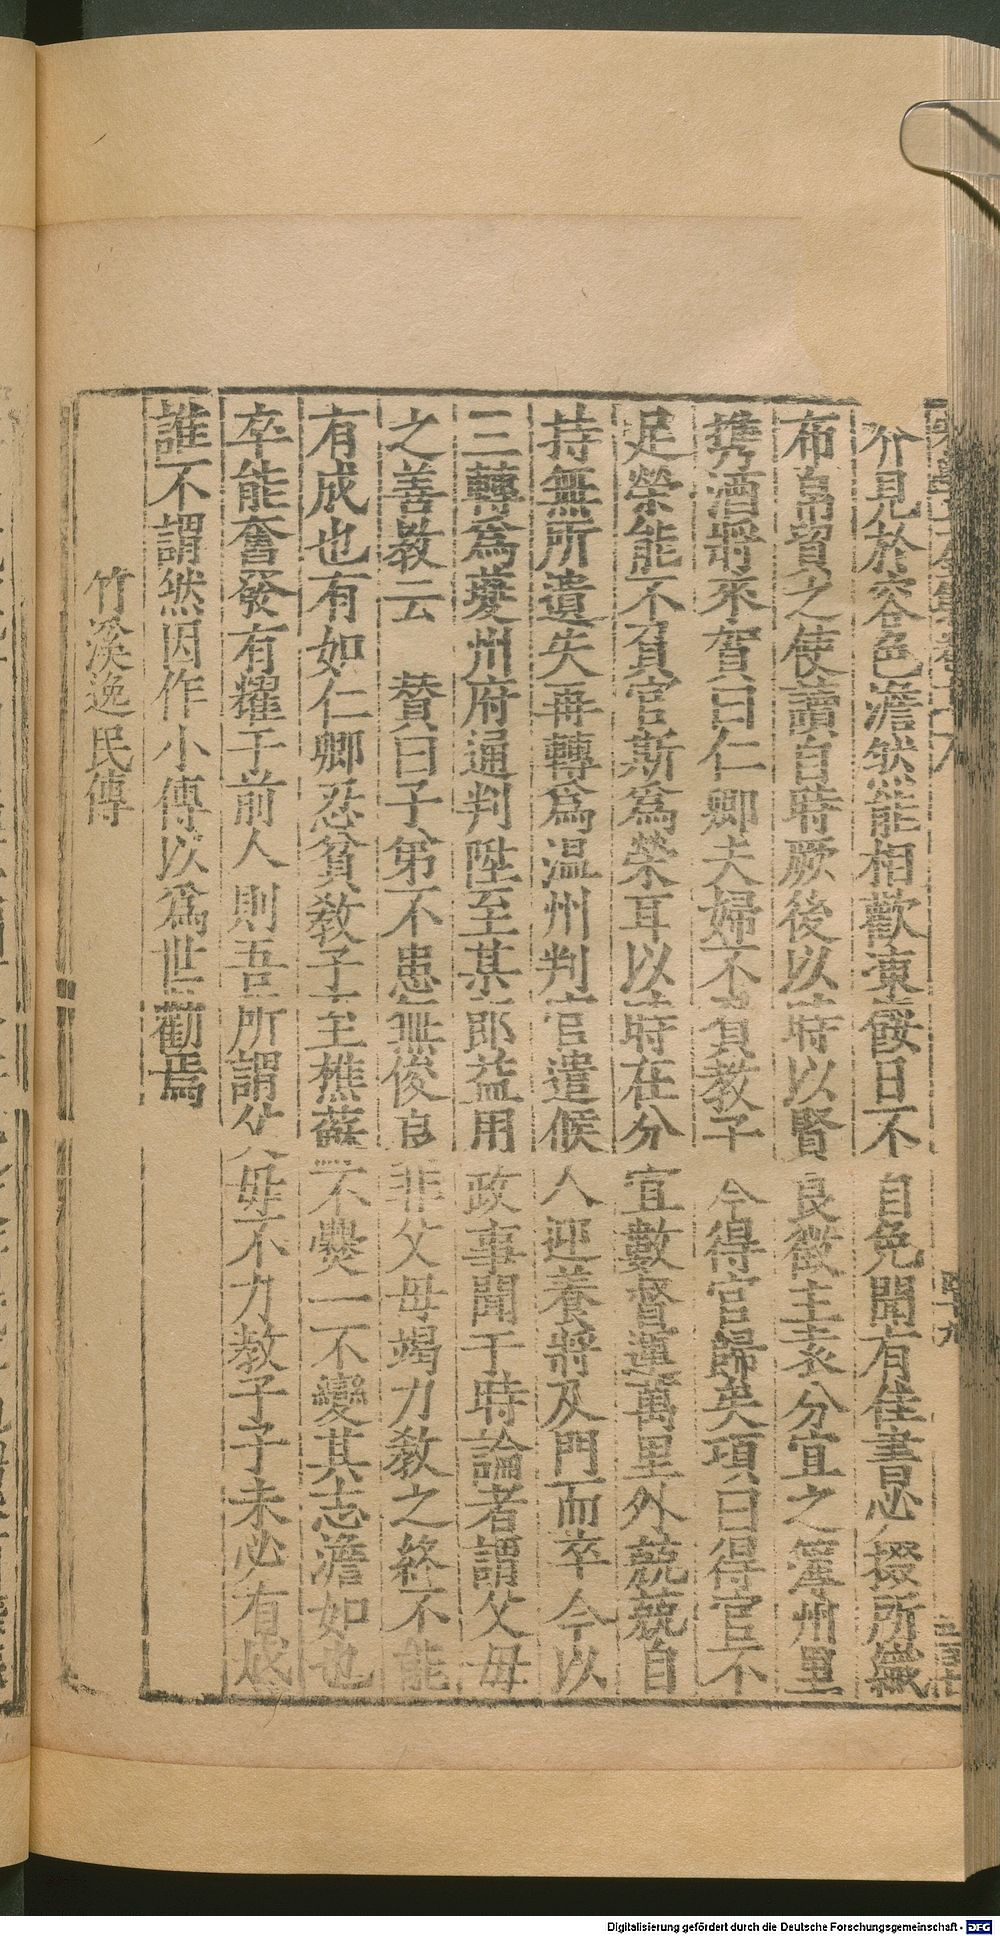 介見於容色澹然能相歡凍餒日不自免聞有佳書必掇所織
布帛貿之使讀自時厥後以時以賢良徵主袁分宜之簿州里
携酒將來賀曰仁卿夫婦不負教子今得官歸矣項曰得官不
足榮能不負官斯爲榮耳以時在分宜數督運萬里外兢兢自
持無所遺失再轉爲温州判官遣候人迎養將及門而卒今以
三轉爲夔州府通判陞至某郎益用政事聞于時論者謂父母
之善教云　贊曰子弟不患無俊良非父母竭力教之終不能
有成也有如仁卿忍貧教子至樵蘇不爨一不變其志澹如也
卒能奮發有耀于前人則吾所謂父母不力教子子未必有成
誰不謂然因作小傳以爲世勸焉
竹溪逸民傳
Digitalisierung gefördert durch die Deutsche Forschungsgemeinschaft - DFG